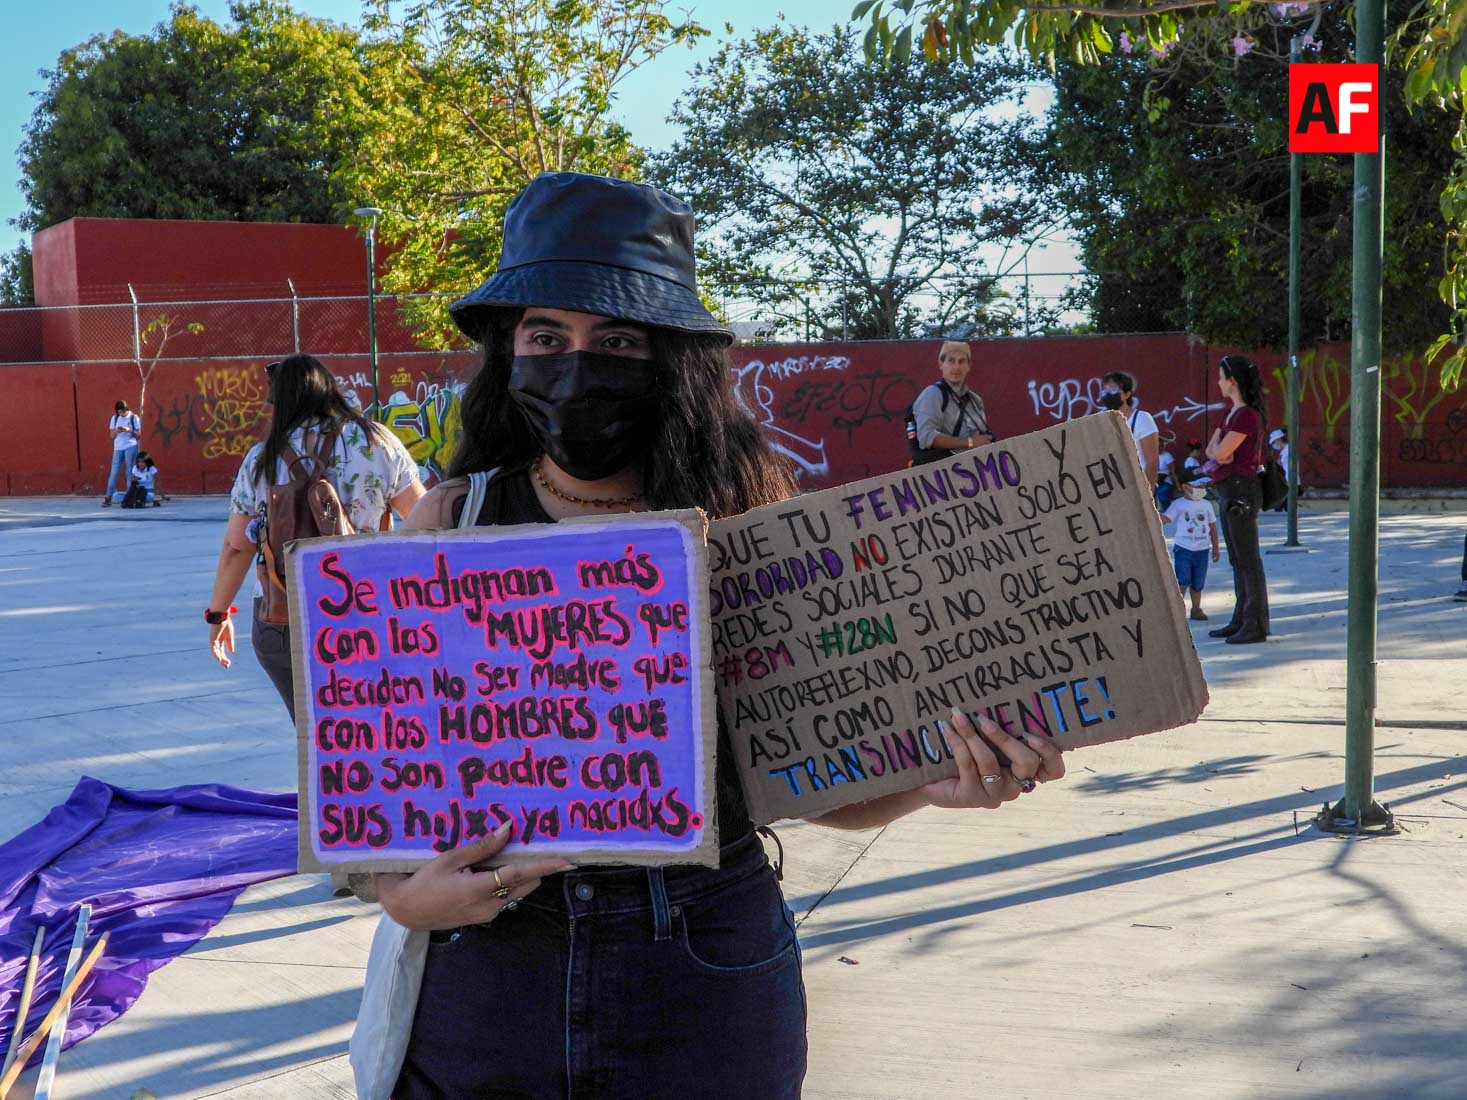 AF
Se indignan más
con las MUJERES que
deciden NO ser madre que
con los HOMBRES que
NO son padre con
sus hijxs ya nacidxs.
QUE TU FEMINISMO Y
SORORIDAD NO EXISTAN SOLO EN
REDES SOCIALES DURANTE EL
#8M Y #28N SI NO QUE SEA
AUTOREFLEXIVO, DECONSTRUCTIVO
ASÍ COMO ANTIRRACISTA Y
TRANSINCLUYENTE!